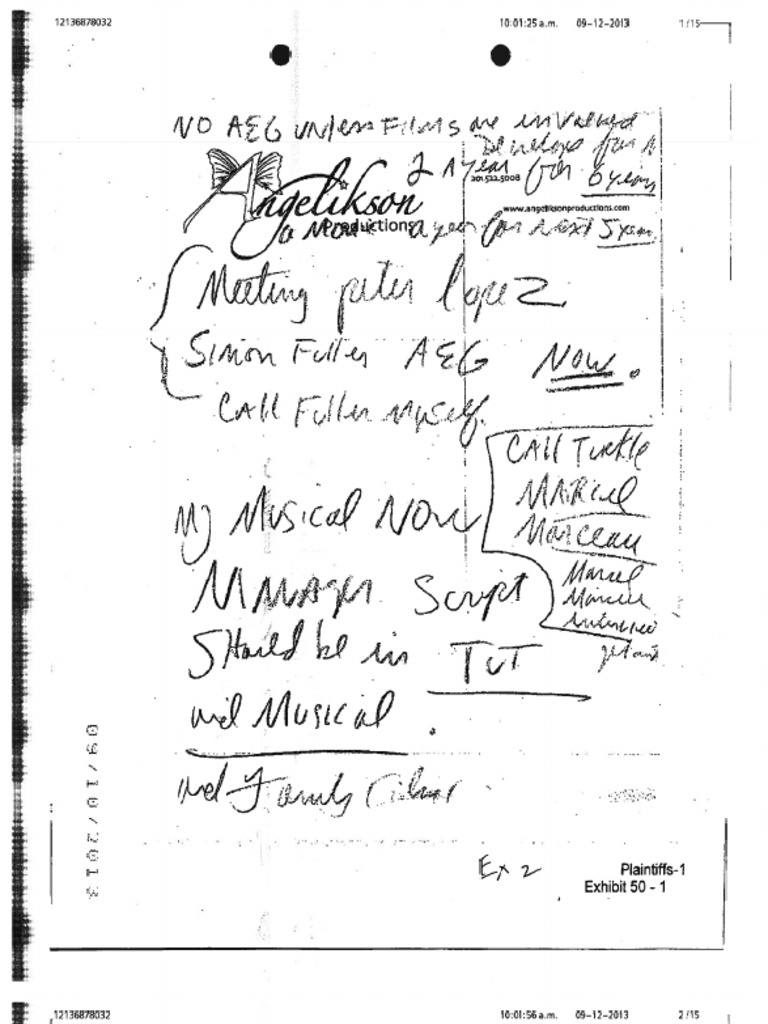 12136878032 10:01:25 a.m. 09-12-2013 1/15
NO AEG unless Films are involved
Develope for A
2 A year for 6 years
201.522.5008
Angelikson
Productions
www.angeliksonproductions.com
a year for next 5 years
Meeting peter lopez
Simon Fuller AEG Now.
CAll Fuller myself.
CAll Turtle
MARCel
Marceau
Marcel
My Musical NOW
Script
Should be in TUT
and Musical.
and Family
09/10/2013
Ex 2
Plaintiffs-1
Exhibit 50 - 1
12136878032 10:01:56 a.m. 09-12-2013 2/15